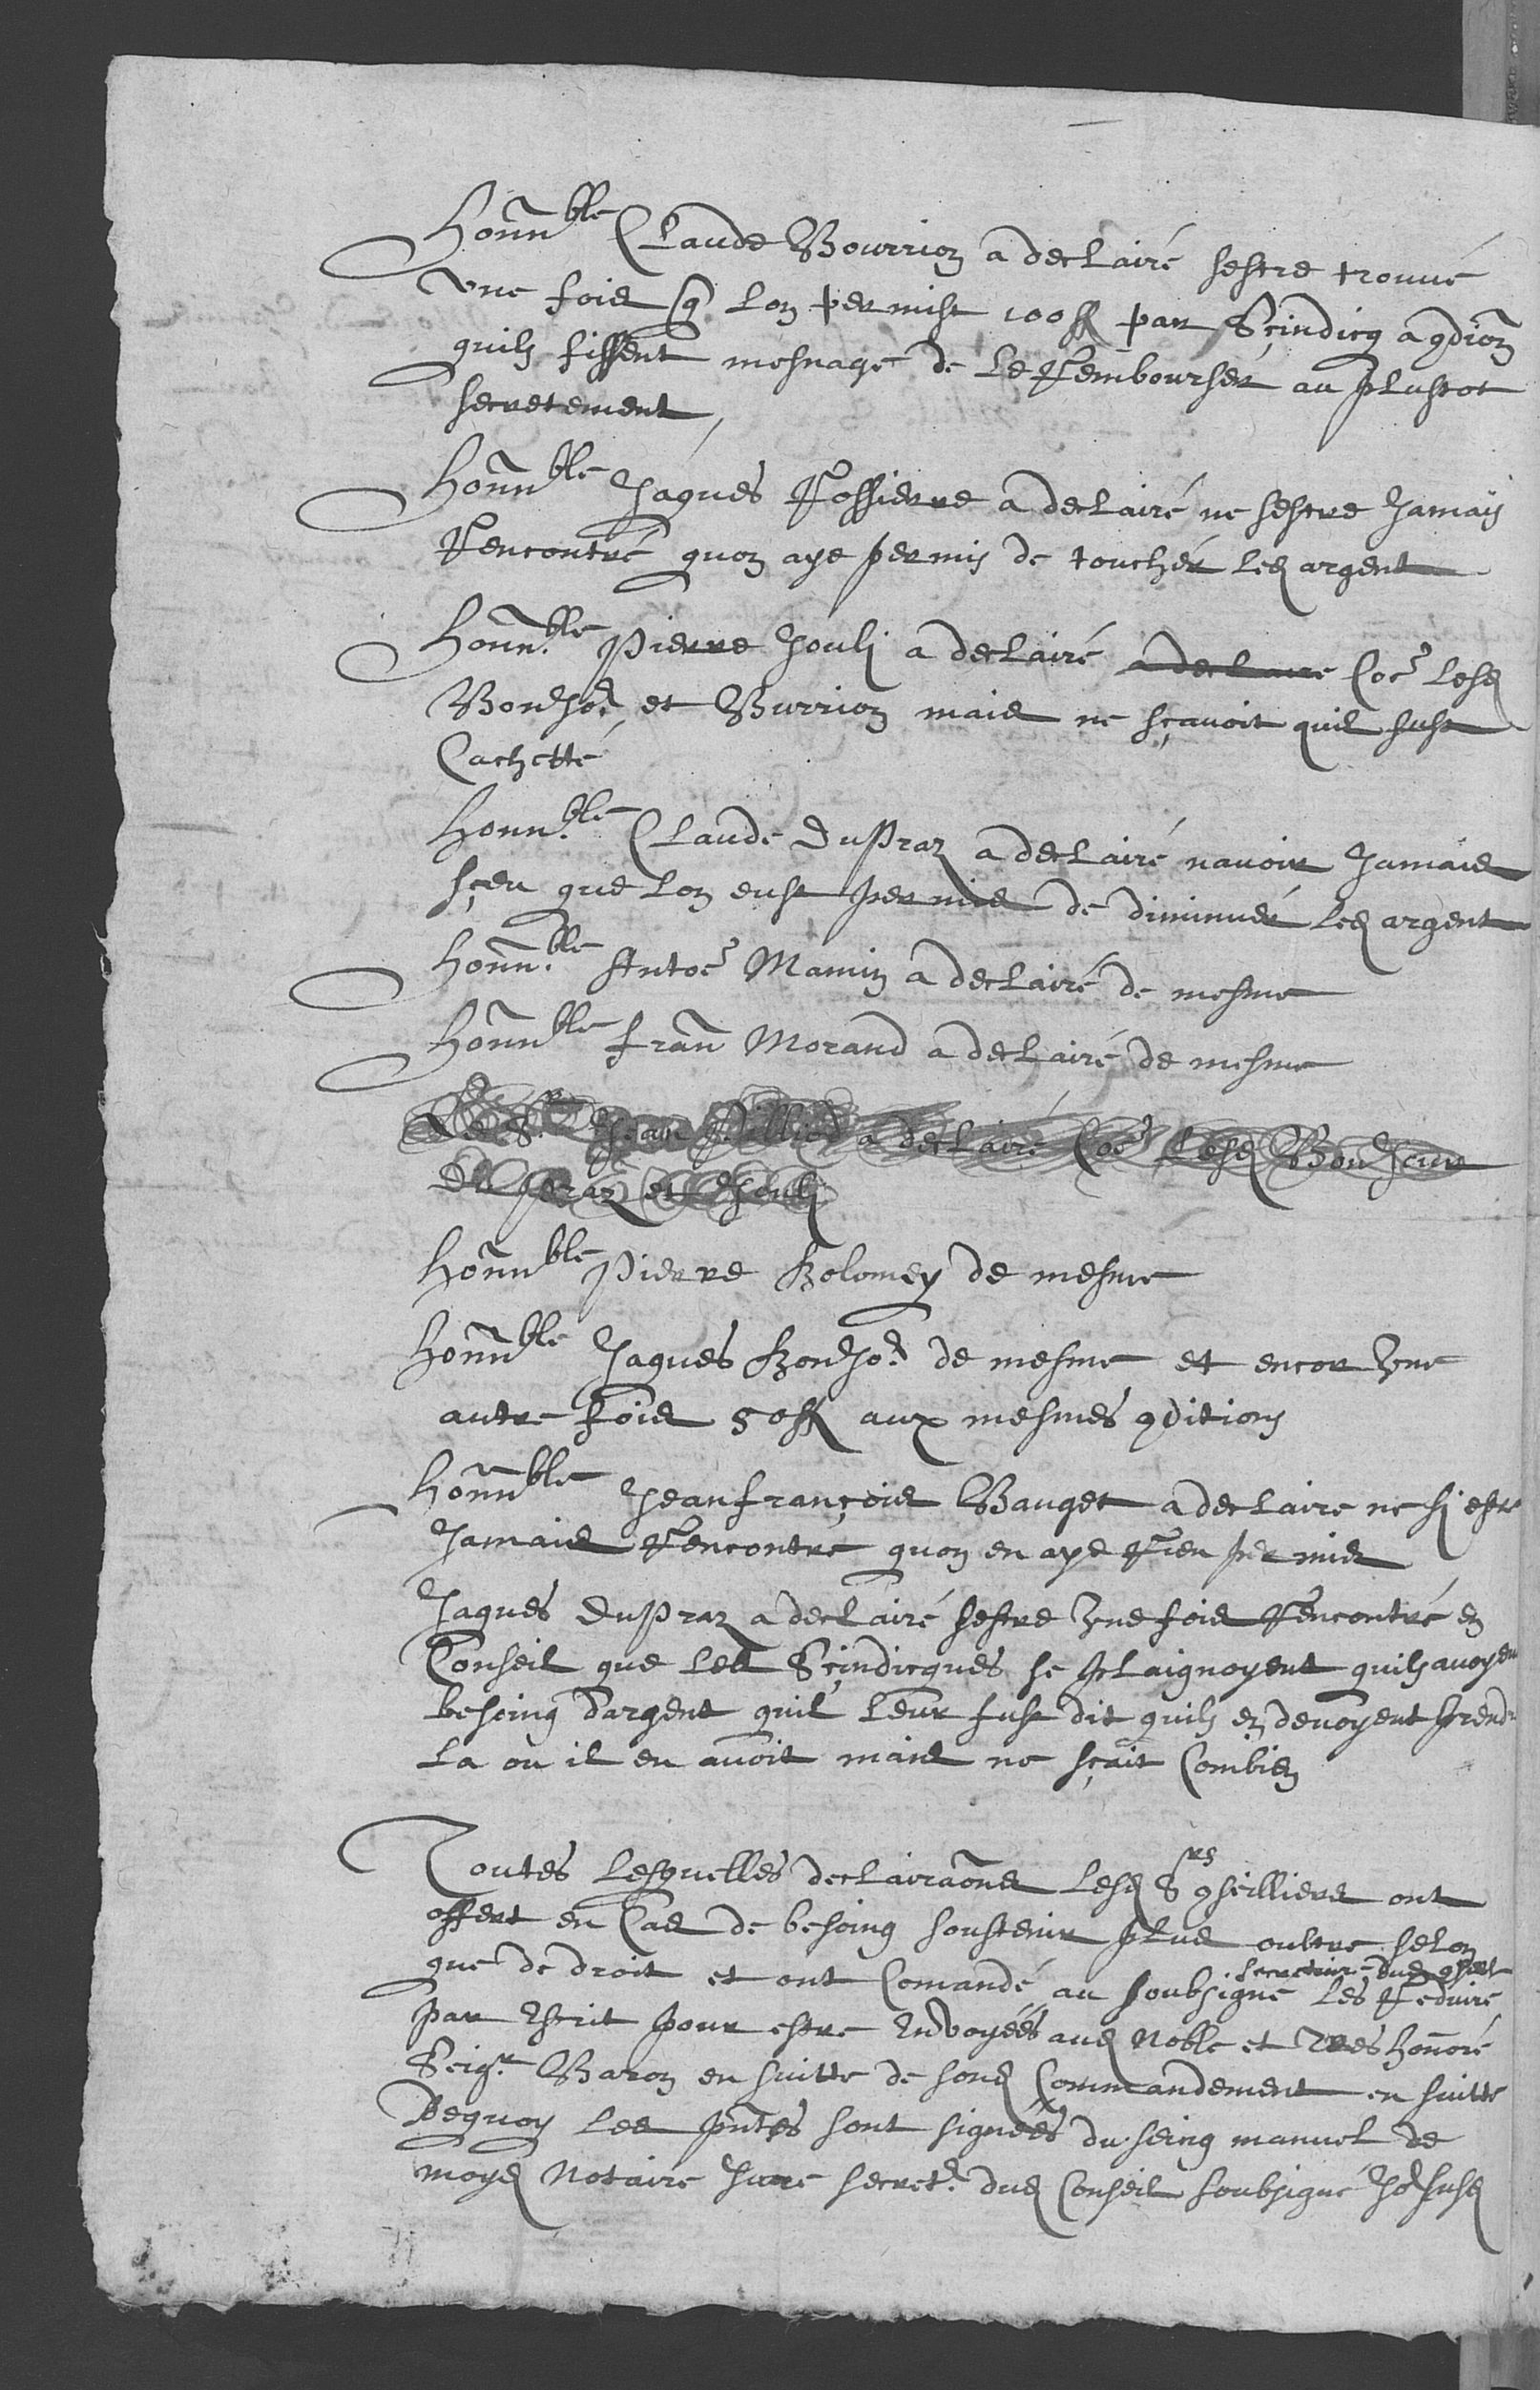 Honnble Claude Bourrion a declairé sestre trouué
vne fois q lon permist 100 ff par Scindicq a 9dion
quils fissent mesnage de le Rembourser au plustot
secretement,
Honnble Jaques Rossierre a declairé ne sestre Jamais
Rencontré quon aye permis de toucher led argent
Honn.ble Pierre Jouli a declairé a declaire Coe lesd
Bonjor et Burrion mais ne sçauoit quil fust
Cachetté
Honn.ble Claude DuPraz a declairé nauoir Jamais
sçeu que lon eust permis de diminuer led argent
Honn.ble Antoe Mamin a declairé de mesme
Honnble fran Morand a declairé de mesme
Le Sr Jean a declairé Coe lesd Bonjour
Du Praz et Jouli
Honnble Pierre Bolomey de mesme
Honnble Jaques Bonjor de mesme et encor Vne
autre fois 50 ff aux mesmes 9ditions
Honnble Jeanfrançois Bauget a declaire ne si estre
Jamais Rencontré quon en aye Rien permis
Jaques DuPraz a declairé sestre Vne fois Rencontré en
Conseil que les Scindicques se plaignoyent quils auoyent
besoing dargent quil leur fust dit quils en deuoyent prendr
la ou il en auoit mais ne sçait Combien
Toutes lesquelles declairaons lesd Srs 9seilliers ont
offert en Cas de besoing soustenir plus oultre selon
que de droit et ont Comandé au soubsigné secretaire dud 9seil les Reduire
par Escrit pour estre Envoyéés aud Noble et Tres honoré
Seigr Baron en suitte de sond Commandement en suitte
Dequoy les pntes sont signéés du seing manuel de
moyd Notaire Juré secretr dud Conseil soubsigné